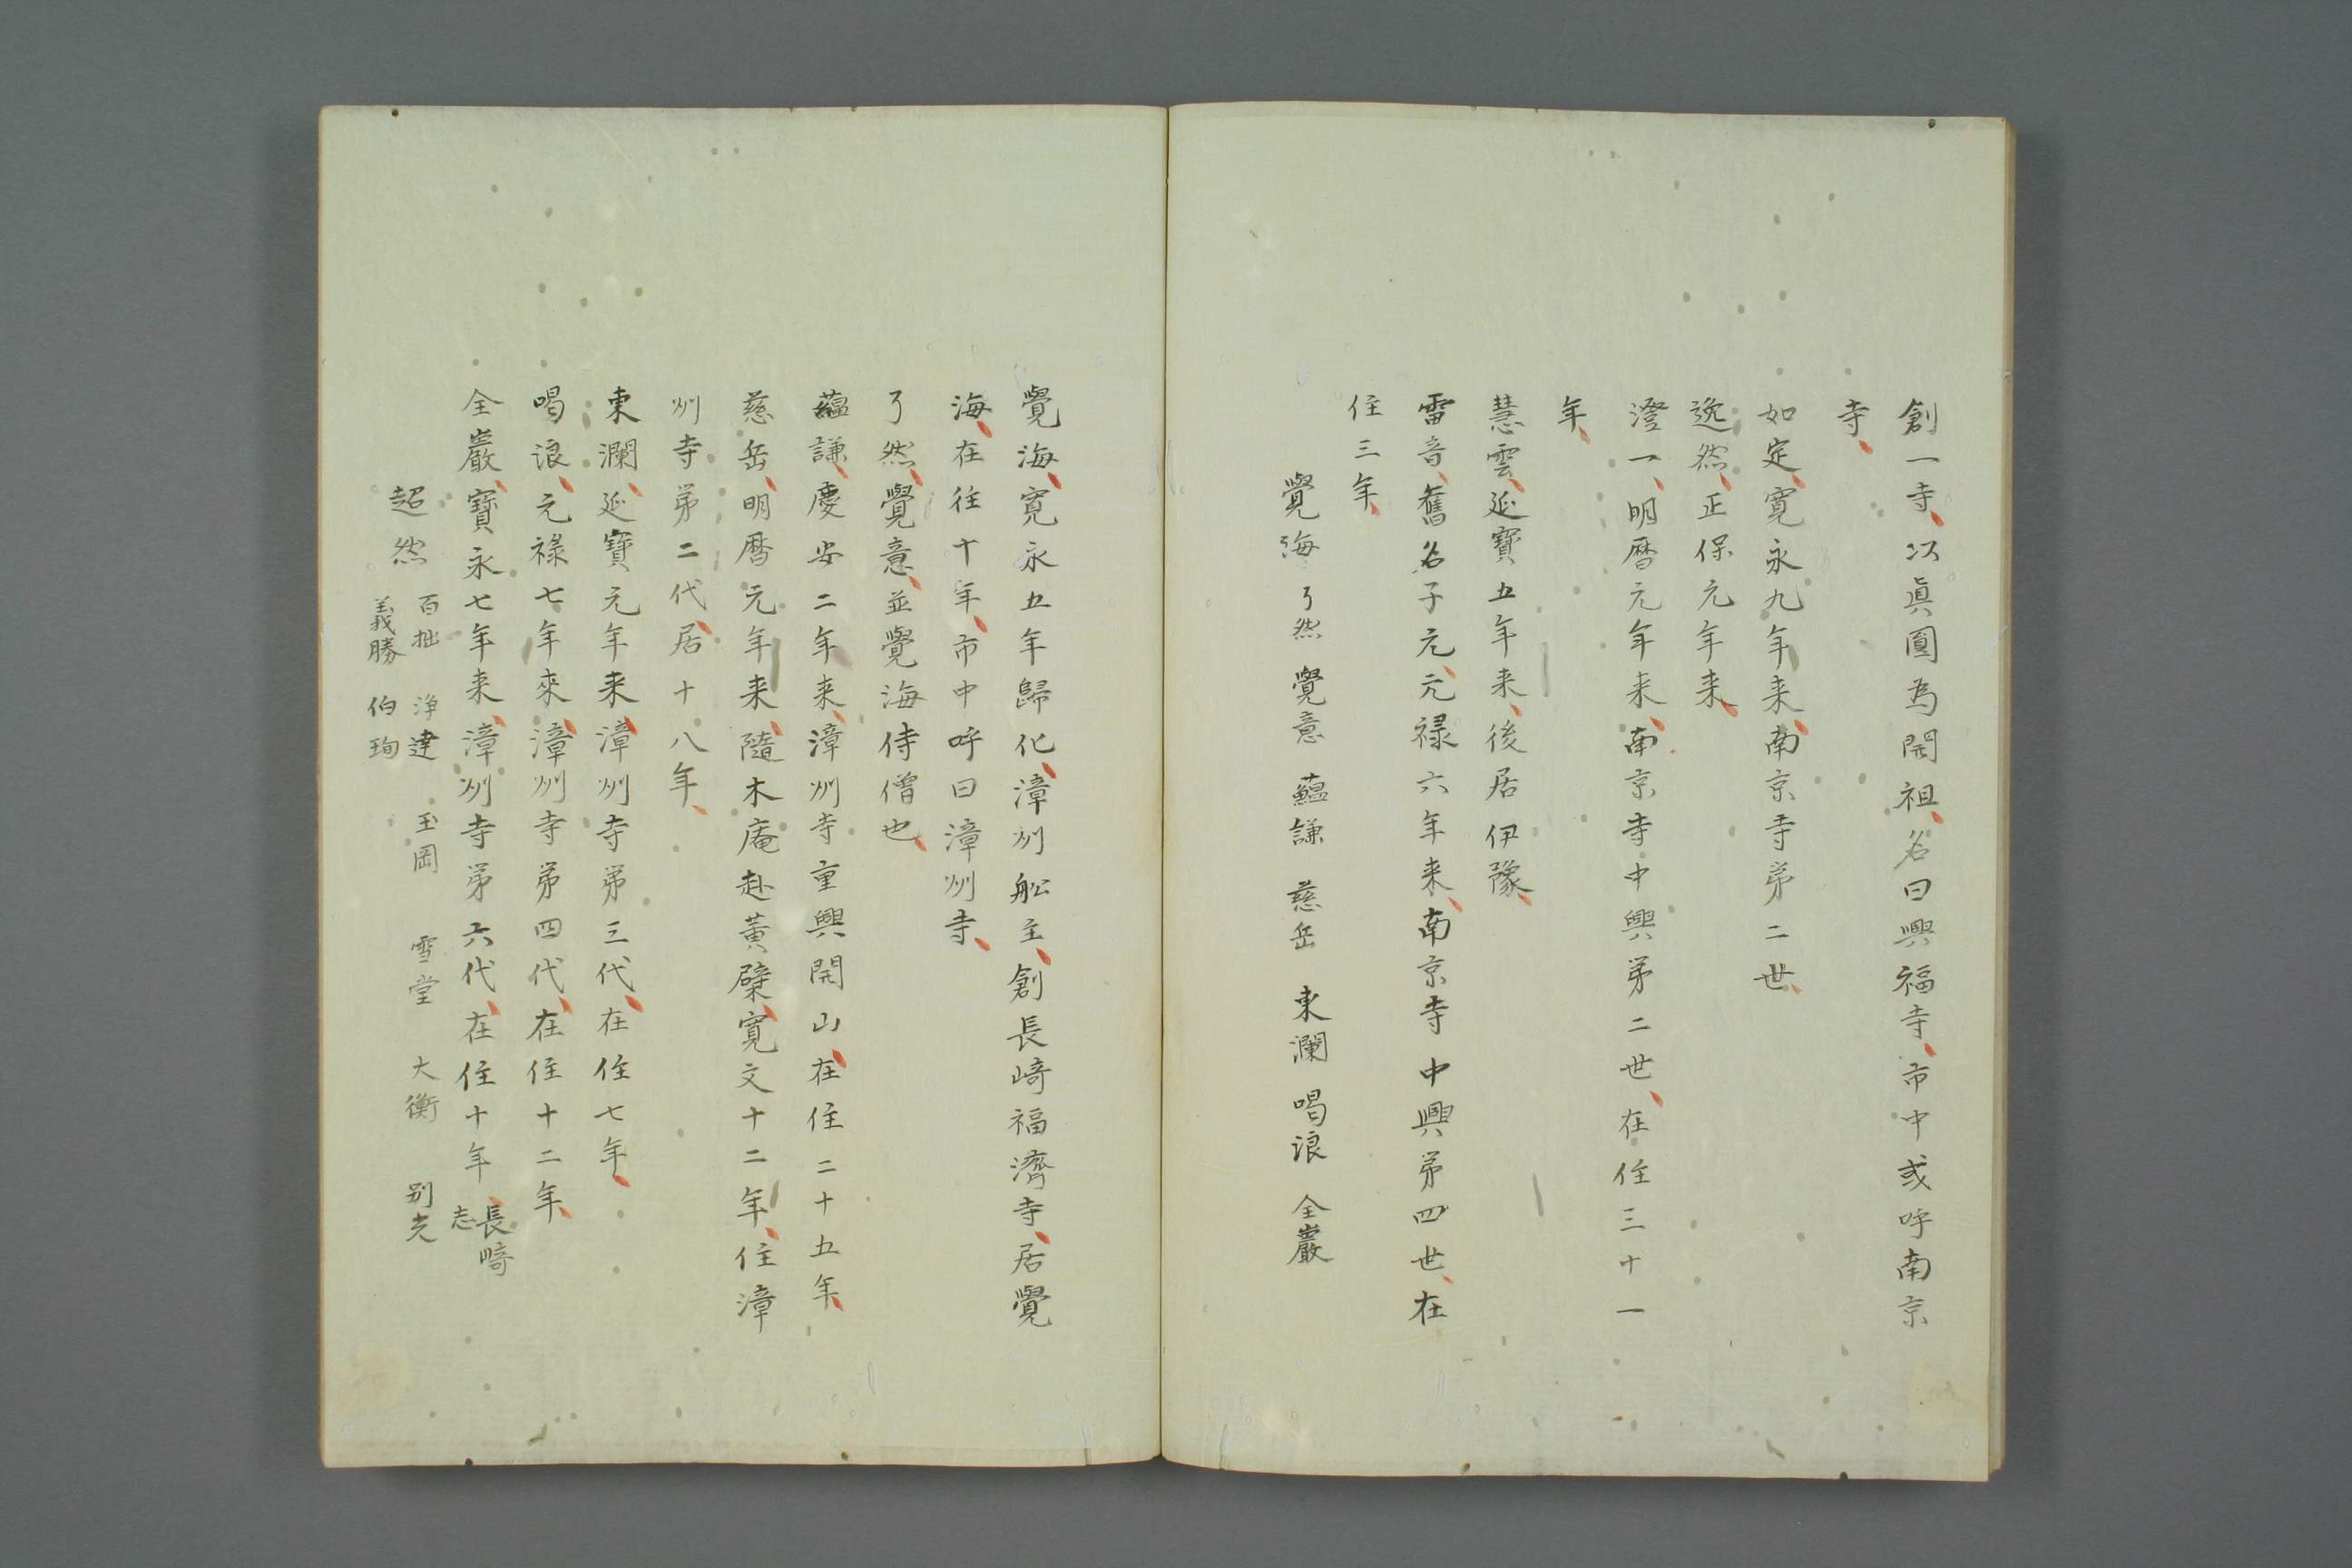 創一寺、以眞圓為開祖、名曰興福寺、市中或呼南京
寺、
如定、寛永九年来、南京寺第二世、
逸然、正保元年来、
澄一、明曆元年来、南京寺中興第二世、在住三十一
年、
慧雲、延寶五年来、後居伊豫、
雷音、舊名子元、元禄六年来、南京寺中興第四世、在
住三年、
覺海 了然 覺意 蘊謙 慈岳 東瀾 喝浪 全巖
覺海、寛永五年歸化、漳州舩主、創長崎福濟寺、居覺
海、在往十年、市中呼曰漳州寺、
了然、覺意、並覺海侍僧也、
蘊謙、慶安二年来、漳州寺重興開山、在住二十五年、
慈岳、明曆元年来、隨木庵赴黃檗、寛文十二年、住漳
州寺第二代、居十八年、
東瀾、延寶元年来、漳州寺第三代、在住七年、
喝浪、元禄七年來、漳州寺第四代、在住十二年、
全巖、寶永七年来、漳州寺第六代、在住十年、長崎志
超然 百拙 浄達 玉岡 雪堂 大衡 別光
義勝 伯珣